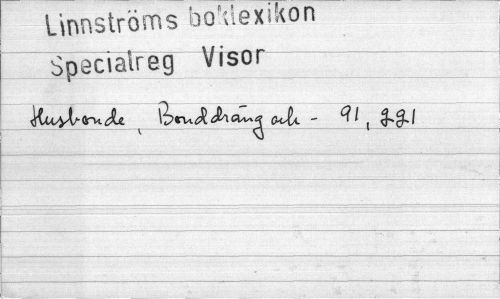 Linnströms boklexikon
Specialreg Visor
Husbonde, Bonddräng och - 91, 221